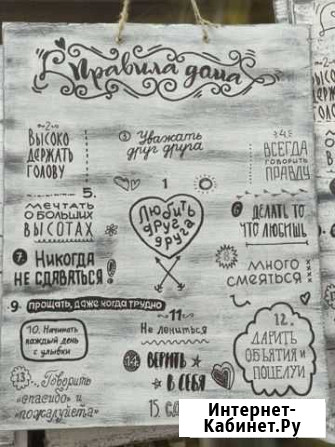 Правила дома
-2-
ВЫСОКО
ДЕРЖАТЬ
ГОЛОВУ
3 Уважать
друг друга
4.
ВСЕГДА
ГОВОРИТЬ
ПРАВДУ
1
Любить
друг
друга
5.
МЕЧТАТЬ
О БОЛЬШИХ
ВЫСОТАХ
6 ДЕЛАТЬ ТО
ЧТО ЛЮБИШЬ
7. НИКОГДА
НЕ СДАВАТЬСЯ!
8
МНОГО
СМЕЯТЬСЯ
9. ПРОЩАТЬ, ДАЖЕ КОГДА ТРУДНО
10. Начинать
каждый день
с улыбки
-11-
Не лениться
12.
ДАРИТЬ
ОБЪЯТИЯ И
ПОЦЕЛУИ
13. Говорить
«спасибо» и
«пожалуйста»
14. ВЕРИТЬ
В СЕБЯ
15.
Интернет-
Кабинет.Ру